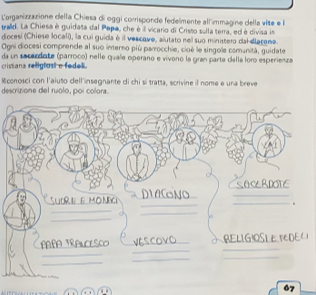 L'organizzazione della Chiesa di oggi corrisponde fedelmente all'immagine della vite e i
tralci. La Chiesa è guidata dal Papa, che è il vicario di Cristo sulla terra, ed è divisa in
diocesi (Chiese locali), la cui guida è il vescovo, aiutato nel suo ministero dal diacono.
Ogni diocesi comprende al suo interno più parrocchie, cioè le singole comunità, guidate
da un sacerdote (parroco) nelle quale operano e vivono la gran parte della loro esperienza
cristiana religiosi e fedeli.
Riconosci con l'aiuto dell'insegnante di chi si tratta, scrivine il nome e una breve
descrizione del ruolo, poi colora.
SACERDOTE
SUORE E MONACI
DIACONO
PAPA FRANCESCO
VESCOVO
RELIGIOSI E FEDELI
67